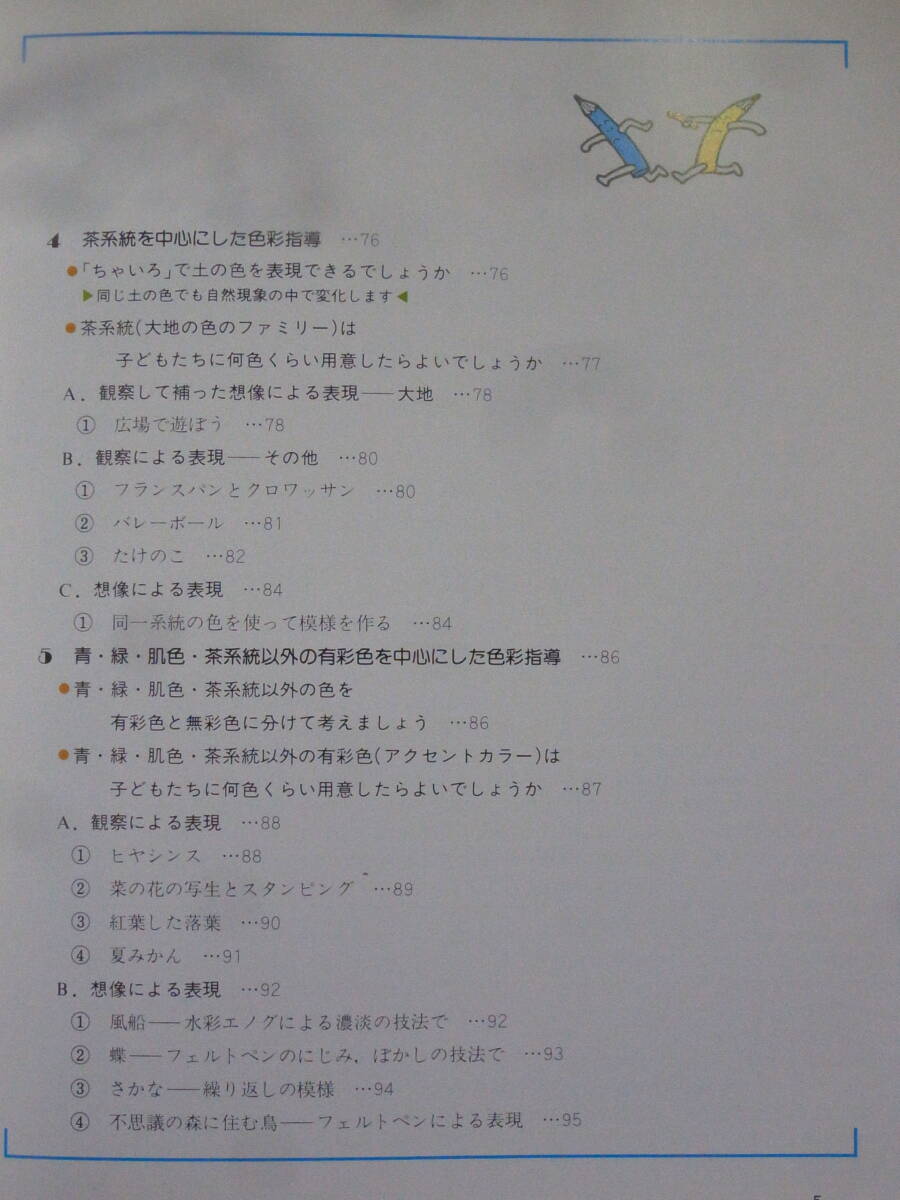 4 茶系統を中心にした色彩指導 …76
●「ちゃいろ」で土の色を表現できるでしょうか …76
▶同じ土の色でも自然現象の中で変化します◀
●茶系統(大地の色のファミリー)は
子どもたちに何色くらい用意したらよいでしょうか …77
A.観察して補った想像による表現──大地 …78
① 広場で遊ぼう …78
B.観察による表現──その他 …80
① フランスパンとクロワッサン …80
② バレーボール …81
③ たけのこ …82
C.想像による表現 …84
① 同一系統の色を使って模様を作る …84
5 青・緑・肌色・茶系統以外の有彩色を中心にした色彩指導 …86
●青・緑・肌色・茶系統以外の色を
有彩色と無彩色に分けて考えましょう …86
●青・緑・肌色・茶系統以外の有彩色(アクセントカラー)は
子どもたちに何色くらい用意したらよいでしょうか …87
A.観察による表現 …88
① ヒヤシンス …88
② 菜の花の写生とスタンピング …89
③ 紅葉した落葉 …90
④ 夏みかん …91
B.想像による表現 …92
① 風船──水彩エノグによる濃淡の技法で …92
② 蝶──フェルトペンのにじみ,ぼかしの技法で …93
③ さかな──繰り返しの模様 …94
④ 不思議の森に住む鳥──フェルトペンによる表現 …95